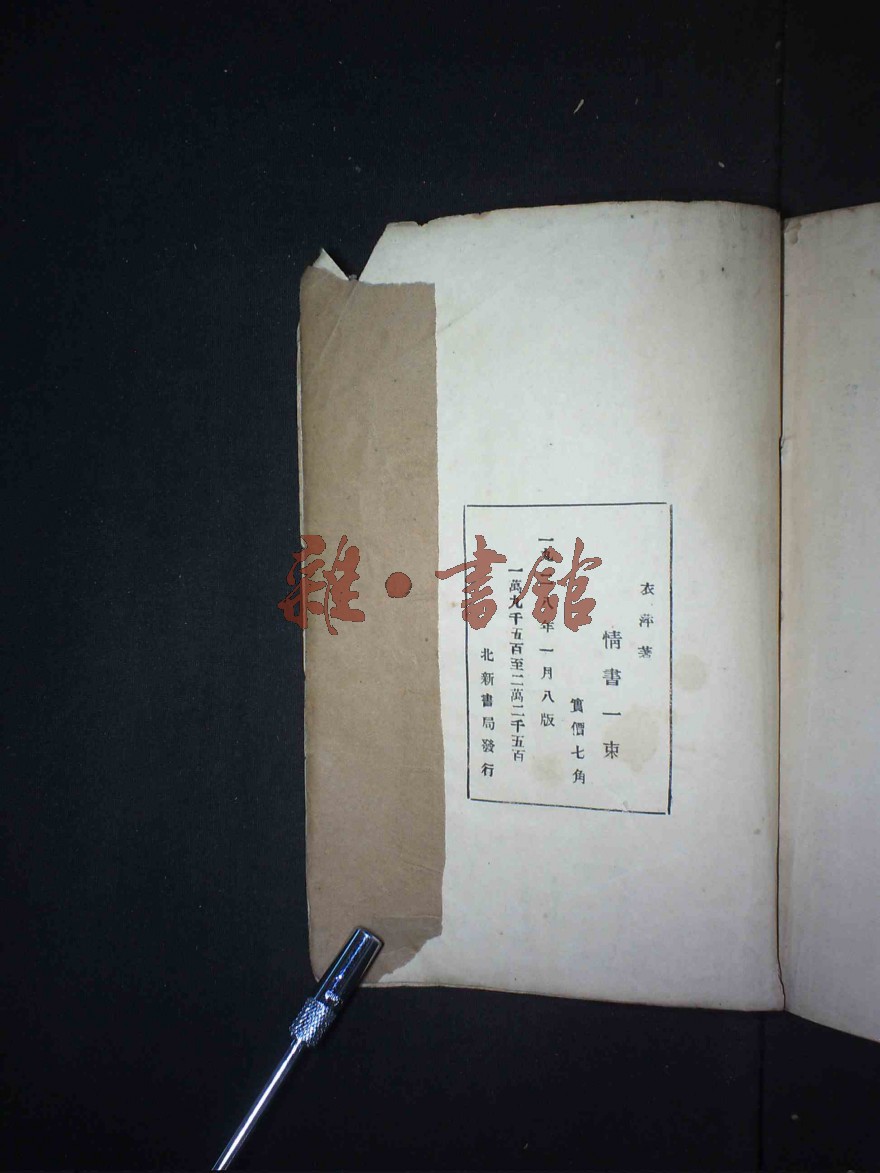 衣萍著
情書一束
實價七角
一九二八年一月八版
一萬九千五百至二萬二千五百
北新書局發行
雜·書館